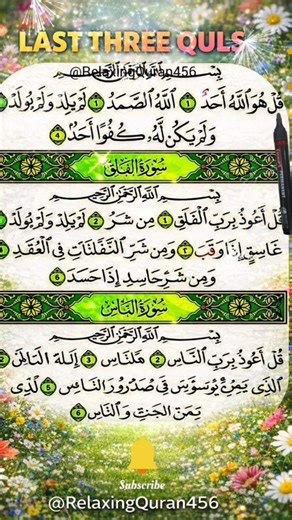 LAST THREE QULS
@RelaxingQuran456
قُلْ هُوَ ٱللَّهُ أَحَدٌ ٱللَّهُ ٱلصَّمَدُ لَمْ يَلِدْ وَلَمْ يُولَدْ
وَلَمْ يَكُن لَّهُ كُفُوًا أَحَدٌ
سُورَةُ الفَلَقِ
بِسْمِ ٱللَّهِ ٱلرَّحْمَٰنِ ٱلرَّحِيمِ
قُلْ أَعُوذُ بِرَبِّ ٱلْفَلَقِ مِن شَرِّ لَمْ يَلِدْ وَلَمْ يُولَدْ
غَاسِقٍ إِذَا وَقَبَ وَمِن شَرِّ ٱلنَّفَّٰثَٰتِ فِى ٱلْعُقَدِ
وَمِن شَرِّ حَاسِدٍ إِذَا حَسَدَ
سُورَةُ النَّاسِ
بِسْمِ ٱللَّهِ ٱلرَّحْمَٰنِ ٱلرَّحِيمِ
قُلْ أَعُوذُ بِرَبِّ ٱلنَّاسِ
ٱلَّذِى فِى صُدُورِ
وَٱلنَّاسِ
Subscribe
@RelaxingQuran456